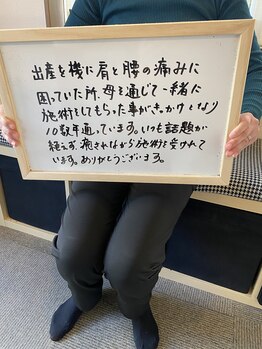 出産を機に肩と腰の痛みに
困っていた所、母を通じて一緒に
施術をしてもらった事がきっかけとなり
10数年通っています。いつも話題が
絶えず、癒されながら施術を受けれて
います。ありがとうございます。